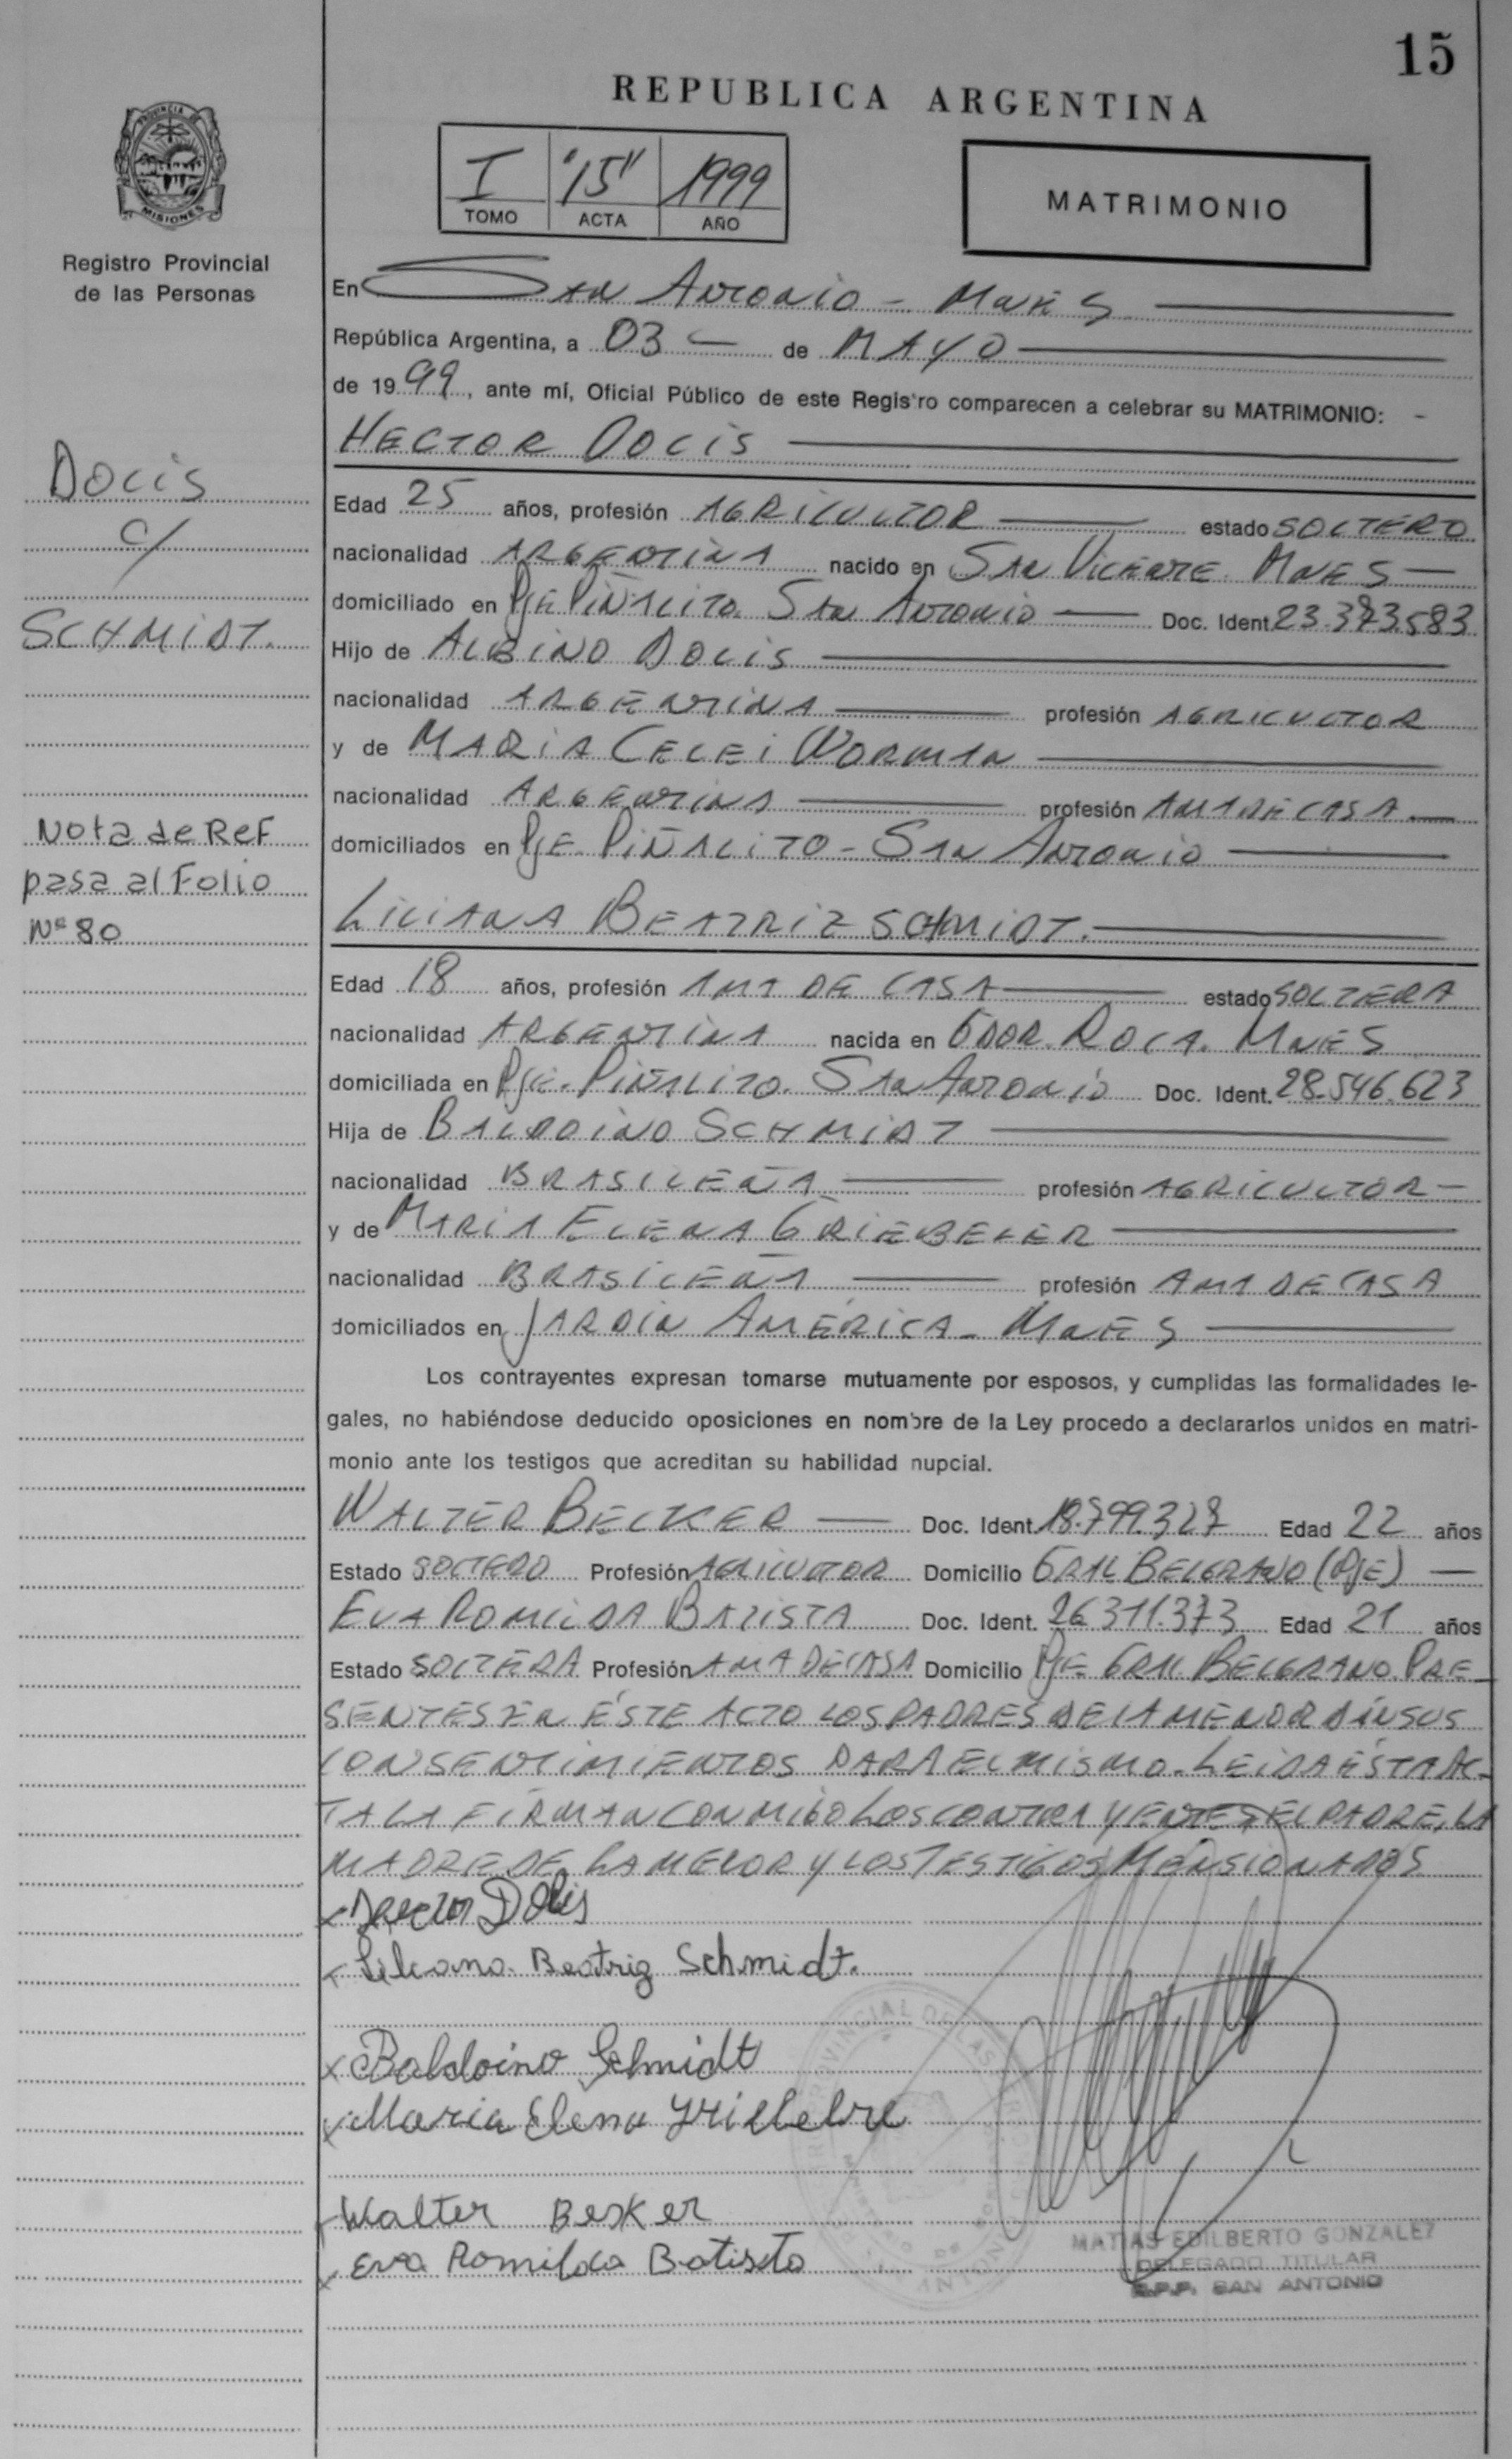 15
REPUBLICA ARGENTINA
I "15" 1999
TOMO ACTA AÑO
MATRIMONIO
PROVINCIA DE
MISIONES
Registro Provincial
de las Personas
Docis
c/
SCHMIDT.
Nota de Ref
pasa al Folio
Nº 80
En San Antonio - Mnes
República Argentina, a 03 de MAYO
de 1999, ante mí, Oficial Público de este Registro comparecen a celebrar su MATRIMONIO: -
HECTOR DOCIS
Edad 25 años, profesión AGRICULTOR estado SOLTERO
nacionalidad ARGENTINA nacido en San Vicente. Mnes
domiciliado en Pje Piñalito. San Antonio Doc. Ident. 23.373.583
Hijo de ALBINO DOCIS
nacionalidad ARGENTINA profesión AGRICULTOR
y de MARIA CELEI WORMAN
nacionalidad ARGENTINA profesión AMA DE CASA
domiciliados en Pje. Piñalito - San Antonio
LILIANA BEATRIZ SCHMIDT.
Edad 18 años, profesión AMA DE CASA estado SOLTERA
nacionalidad ARGENTINA nacida en Gdor. Roca. Mnes
domiciliada en Pje. Piñalito. San Antonio Doc. Ident. 28.546.623
Hija de BALDOINO SCHMIDT
nacionalidad BRASILEÑA profesión AGRICULTOR -
y de MARIA ELENA GRIEBELER
nacionalidad BRASILEÑA profesión AMA DE CASA
domiciliados en JARDIN AMÉRICA - Mnes
Los contrayentes expresan tomarse mutuamente por esposos, y cumplidas las formalidades le-
gales, no habiéndose deducido oposiciones en nombre de la Ley procedo a declararlos unidos en matri-
monio ante los testigos que acreditan su habilidad nupcial.
WALTER BECKER Doc. Ident. 18.799.327 Edad 22 años
Estado SOLTERO Profesión AGRICULTOR Domicilio GRAL BELGRANO (PJE)
EVA ROMILDA BATISTA Doc. Ident. 26.311.373 Edad 21 años
Estado SOLTERA Profesión AMA DE CASA Domicilio PJE GRAL BELGRANO. PRE_
SENTES EN ÉSTE ACTO LOS PADRES DE LA MENOR DAN SUS
CONSENTIMIENTOS PARA EL MISMO. LEIDA ÉSTA AC-
TA LA FIRMAN CONMIGO LOS CONTRAYENTES, EL PADRE, LA
MADRE DE LA MENOR Y LOS TESTIGOS MENSIONADOS
x Hector Docis
x Liliana Beatriz Schmidt.
x Baldoino Schmidt
x Maria Elena
x Walter Besker
x Eva Romilda Batista
MATIAS EDILBERTO GONZALEZ
DELEGADO TITULAR
R.P.P. SAN ANTONIO